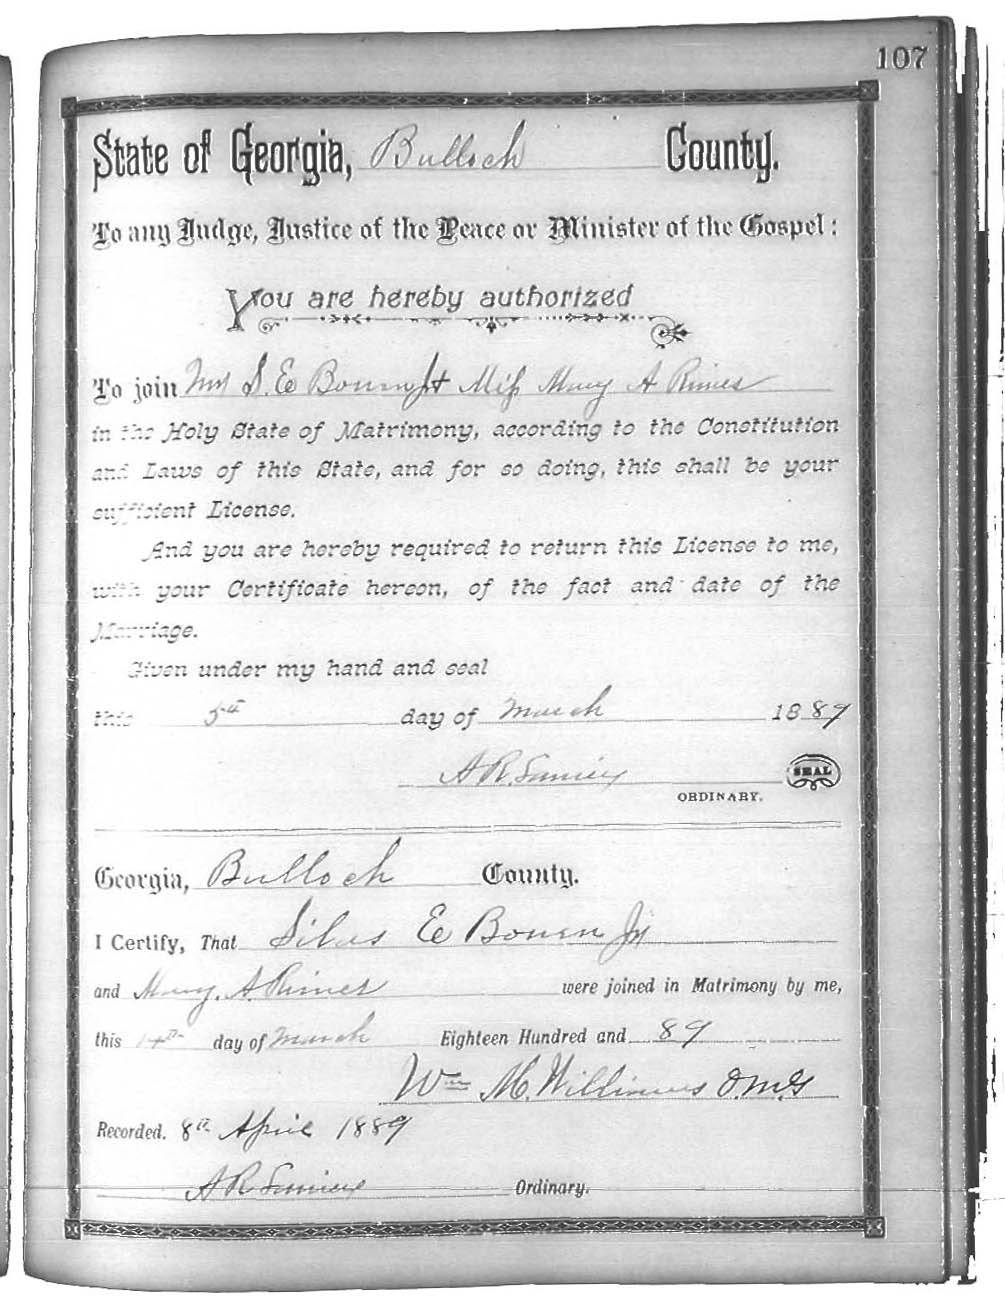 107
State of Georgia, Bulloch County.
To any Judge, Justice of the Peace or Minister of the Gospel:
You are hereby authorized
To join Mr S. E Bowen Jr & Miss Mary A Rimes
in the Holy State of Matrimony, according to the Constitution
and Laws of this State, and for so doing, this shall be your
sufficient License.
And you are hereby required to return this License to me,
with your Certificate hereon, of the fact and date of the
Marriage.
Given under my hand and seal
this 5th day of March 1889
A R.
SEAL
ORDINARY.
Georgia, Bulloch County.
I Certify, That Silas E Bowen Jr
and Mary. A Rimes were joined in Matrimony by me,
this 14th day of March Eighteen Hundred and 89
Wm M. Williams O.M.G
Recorded. 8th April 1889
A R Ordinary.